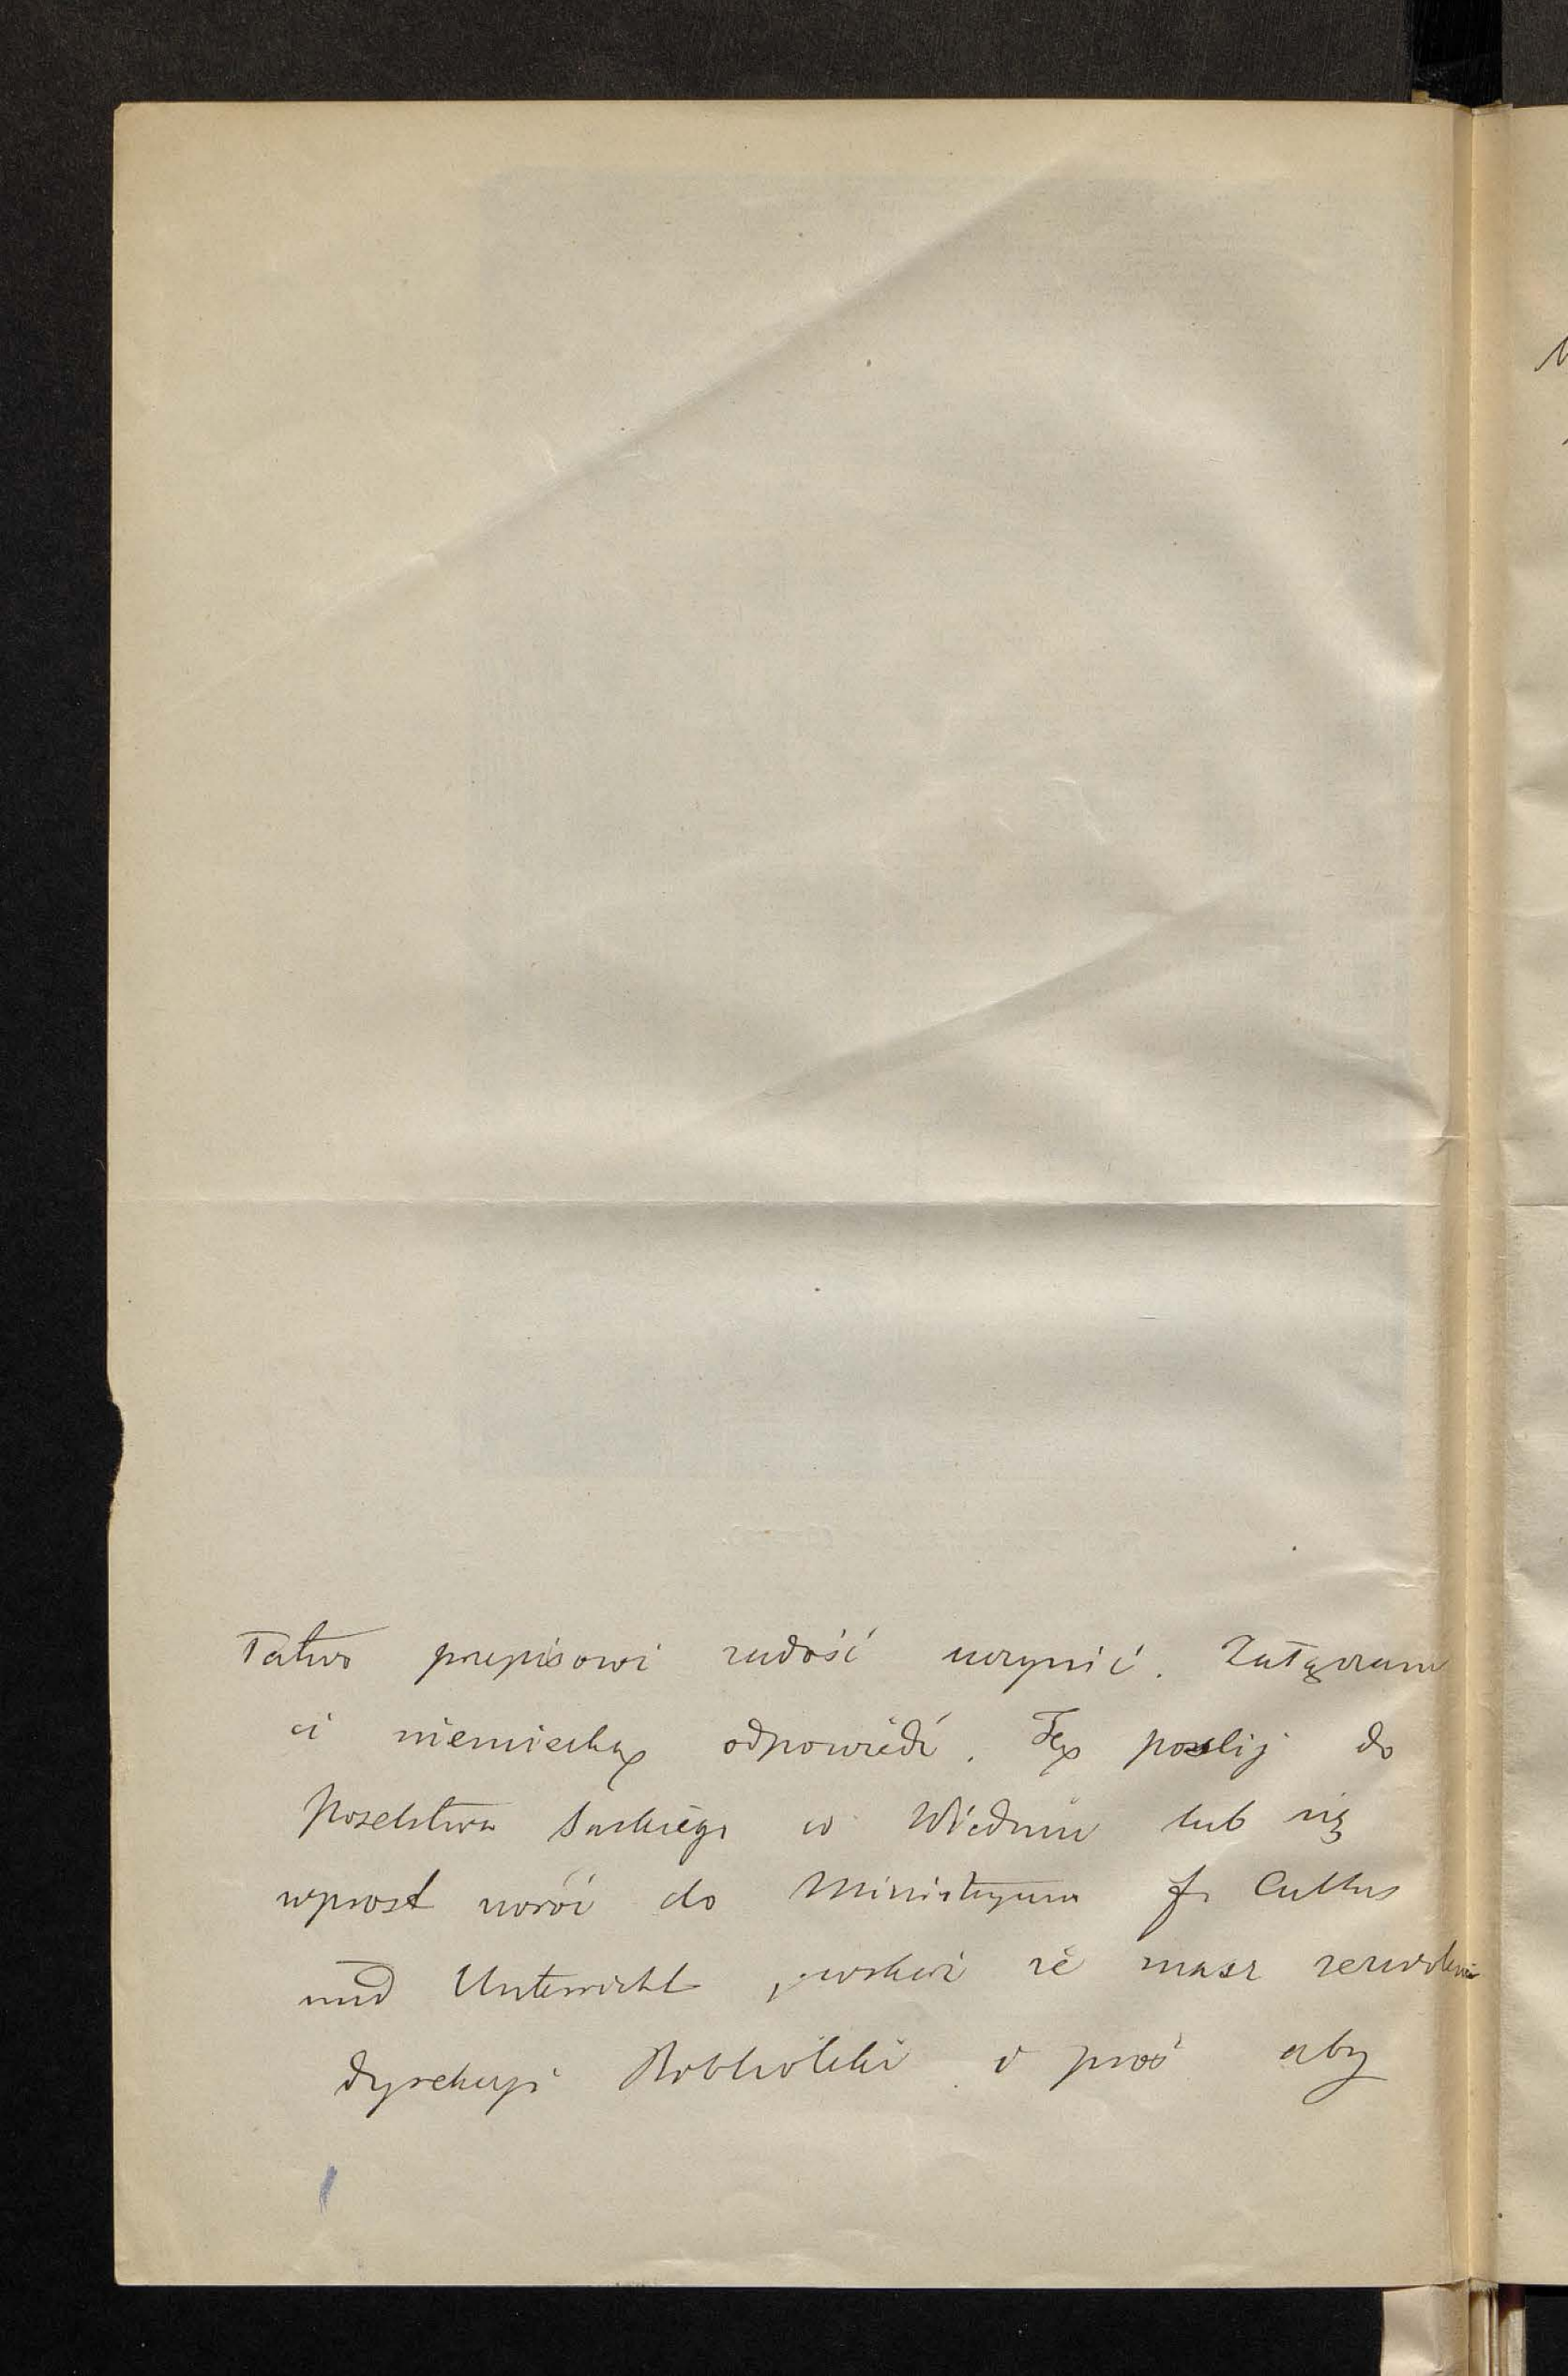 Łatwo przepisowi zadość uczynić. Załączam
ci niemiecką odpowiedź. Tę poślij do
Poselstwa Saskiego w Wiedniu lub się
wprost zwróć do Ministeryum f. Cultus
und Unterricht, wskaż że masz zezwolenie
dyrekcyi Biblioteki i proś aby